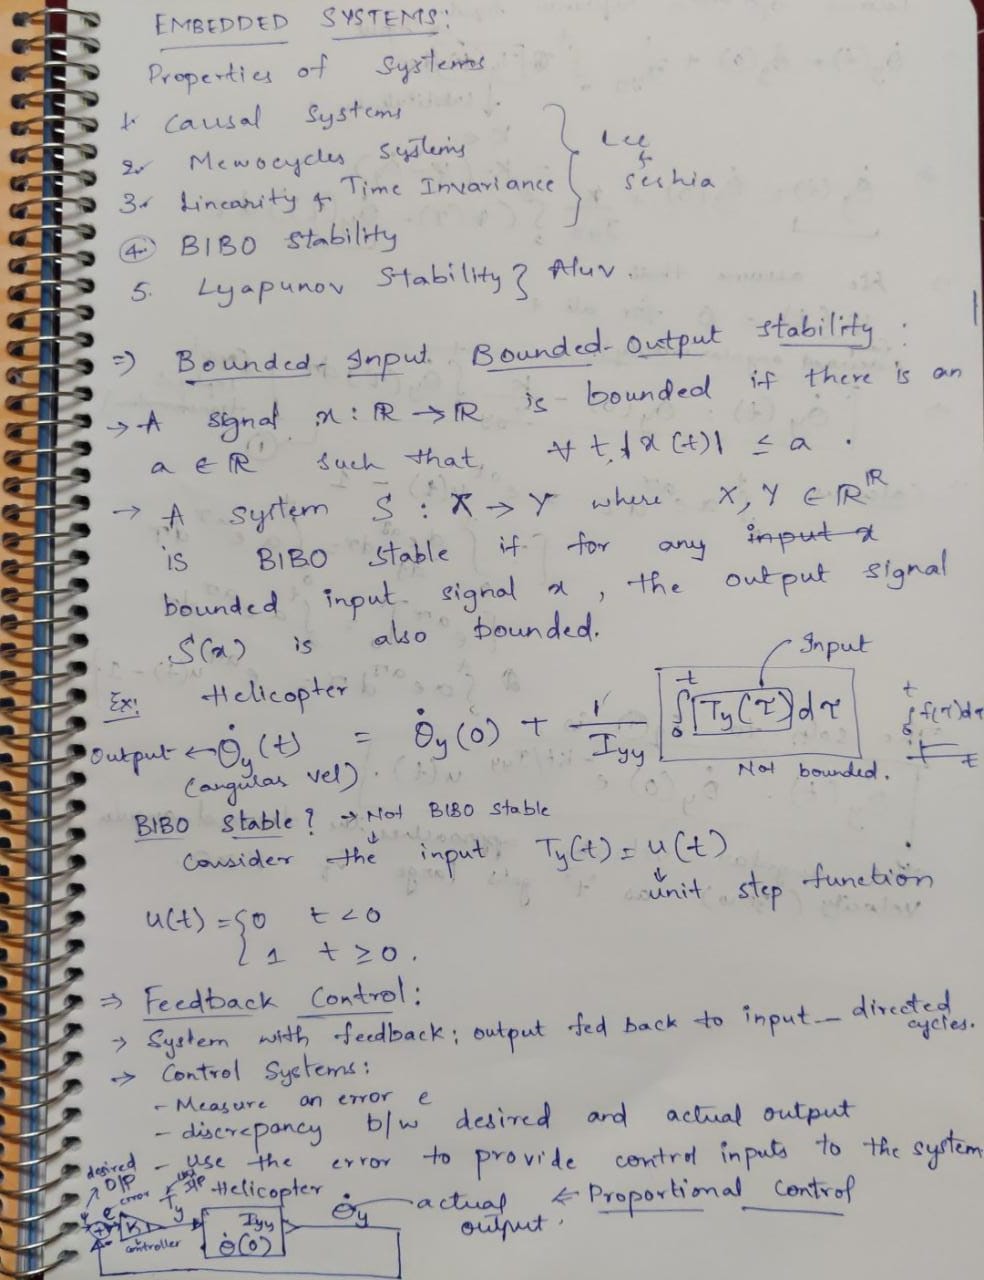 EMBEDDED SYSTEMS:
Properties of Systems
1. Causal Systems
2. Mewocycles Systems
3. Linearity & Time Invariance } Lee & Seshia
4. BIBO Stability
5. Lyapunov Stability } Aluv.
⇒ Bounded-Input Bounded-Output stability:
→ A signal x: ℝ → ℝ is bounded if there is an
a ∈ ℝ such that, ∀ t, |x(t)| ≤ a.
→ A system S: X → Y where X, Y ∈ ℝ^ℝ
is BIBO stable if for any input x
bounded input signal x, the output signal
S(x) is also bounded.
Input
Ex: Helicopter
Output ← θ̇y(t) = θ̇y(0) + 1/Iyy ∫₀ᵗ Ty(τ) dτ
∫₀ᵗ f(τ)dτ
(angular vel)
Not bounded.
t
BIBO Stable? → Not BIBO stable
Consider the input Ty(t) = u(t)
unit step function
u(t) = { 0 t < 0
1 t ≥ 0.
⇒ Feedback Control:
→ System with feedback; output fed back to input — directed cycles.
→ Control Systems:
- Measure an error e
- discrepancy b/w desired and actual output
- use the error to provide control inputs to the system
desired O/P
error e
K
controller
Ty
I/P
Helicopter
Iyy
θ̇(0)
θ̇y → actual output.
⇐ Proportional Control